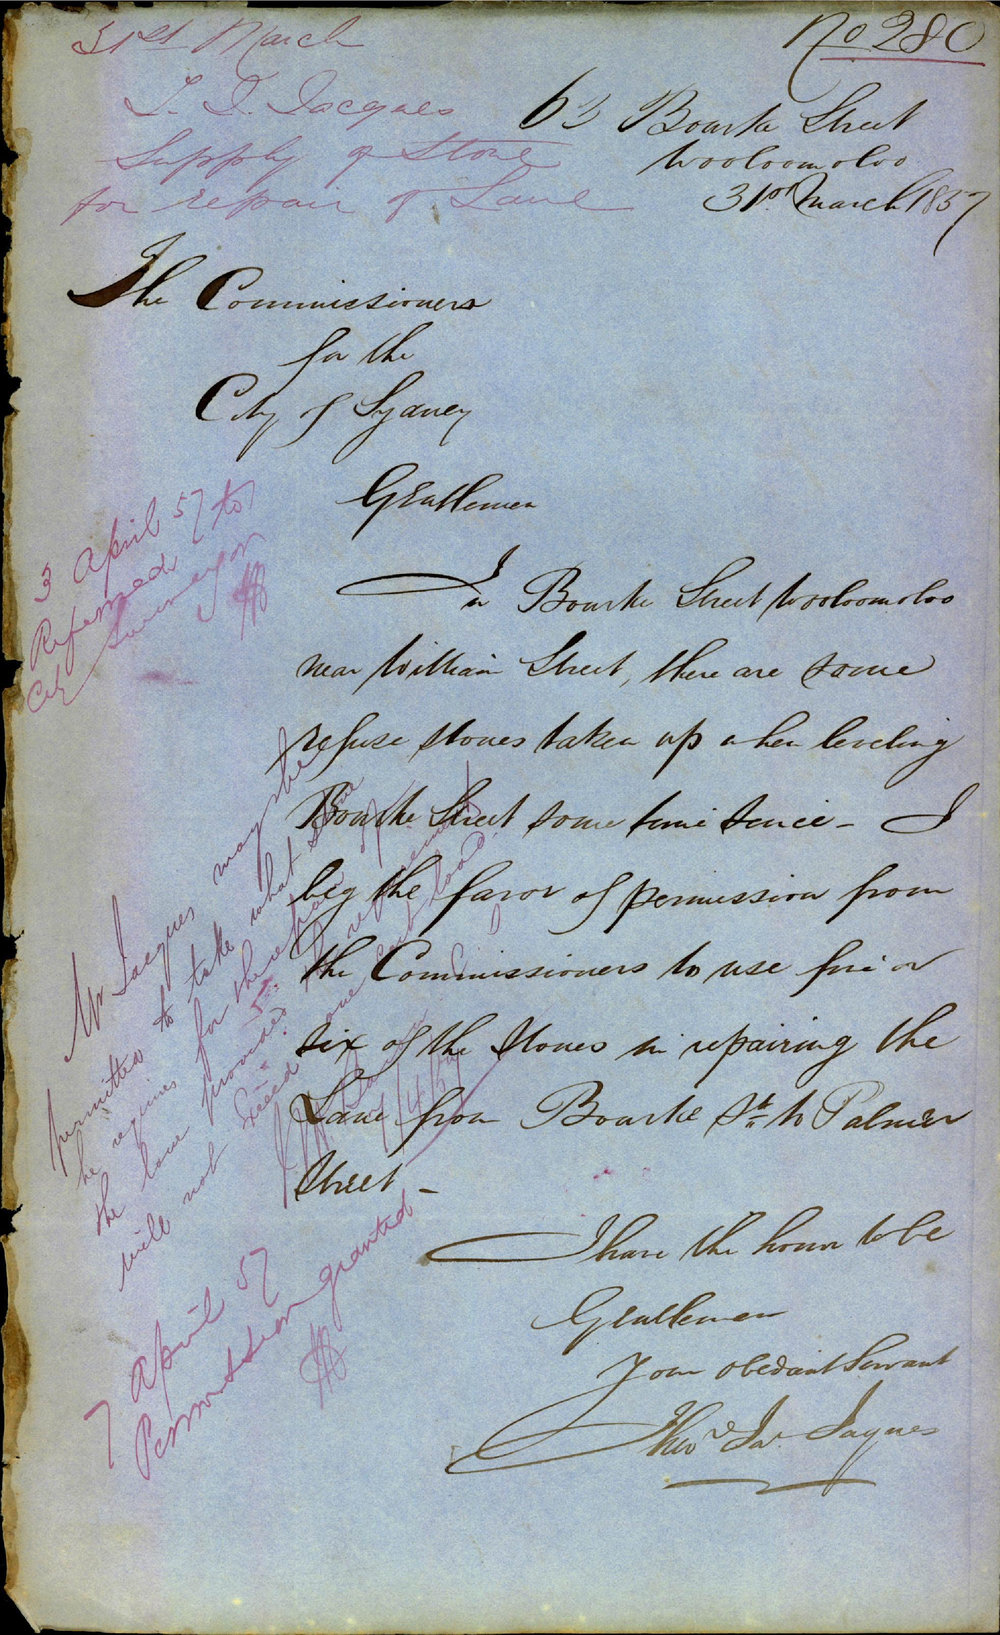 No 280
31st March
T. J. Jacques
Supply of Stone
for repair of Lane
63 Bourke Street
Wooloomoloo
31st March 1857
The Commissioners
for the
City of Sydney
Gentlemen
In Bourke Street Wooloomoloo
near William Street, there are some
refuse stones taken up when leveling
Bourke Street some time since - I
beg the favor of permission from
the Commissioners to use five or
six of the stones in repairing the
Lane from Bourke St. to Palmer
Street -
I have the honor to be
Gentlemen
Your obedient Servant
Theo Jas. Jaques
3 April 57
Referred to
City Surveyor
Mr Jacques may be
permitted to take what stone
he requires for the repair of
the lane provided it
will not exceed one cart load.
7/4/57
7 April 57
Permission granted